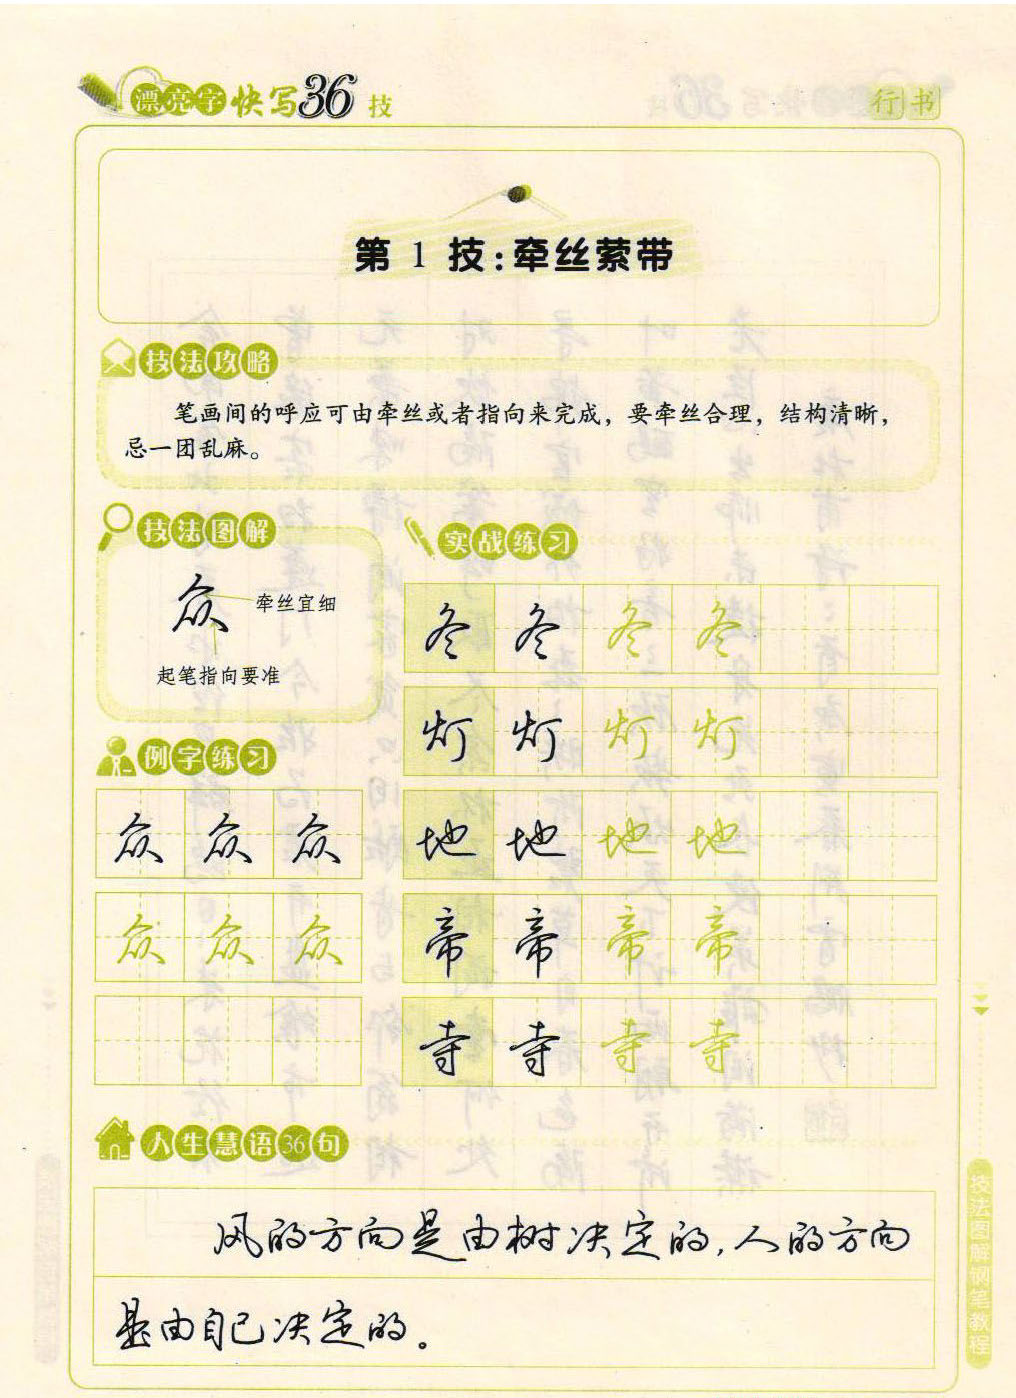 漂亮字快写36技
行书
第1技:牵丝萦带
技法攻略
笔画间的呼应可由牵丝或者指向来完成，要牵丝合理，结构清晰，
忌一团乱麻。
技法图解
众
牵丝宜细
起笔指向要准
例字练习
众 众 众
众 众 众
实战练习
冬 冬 冬 冬
灯 灯 灯 灯
地 地 地 地
帝 帝 帝 帝
寺 寺 寺 寺
人生慧语36句
风的方向是由树决定的,人的方向
是由自己决定的。
技法图解钢笔教程